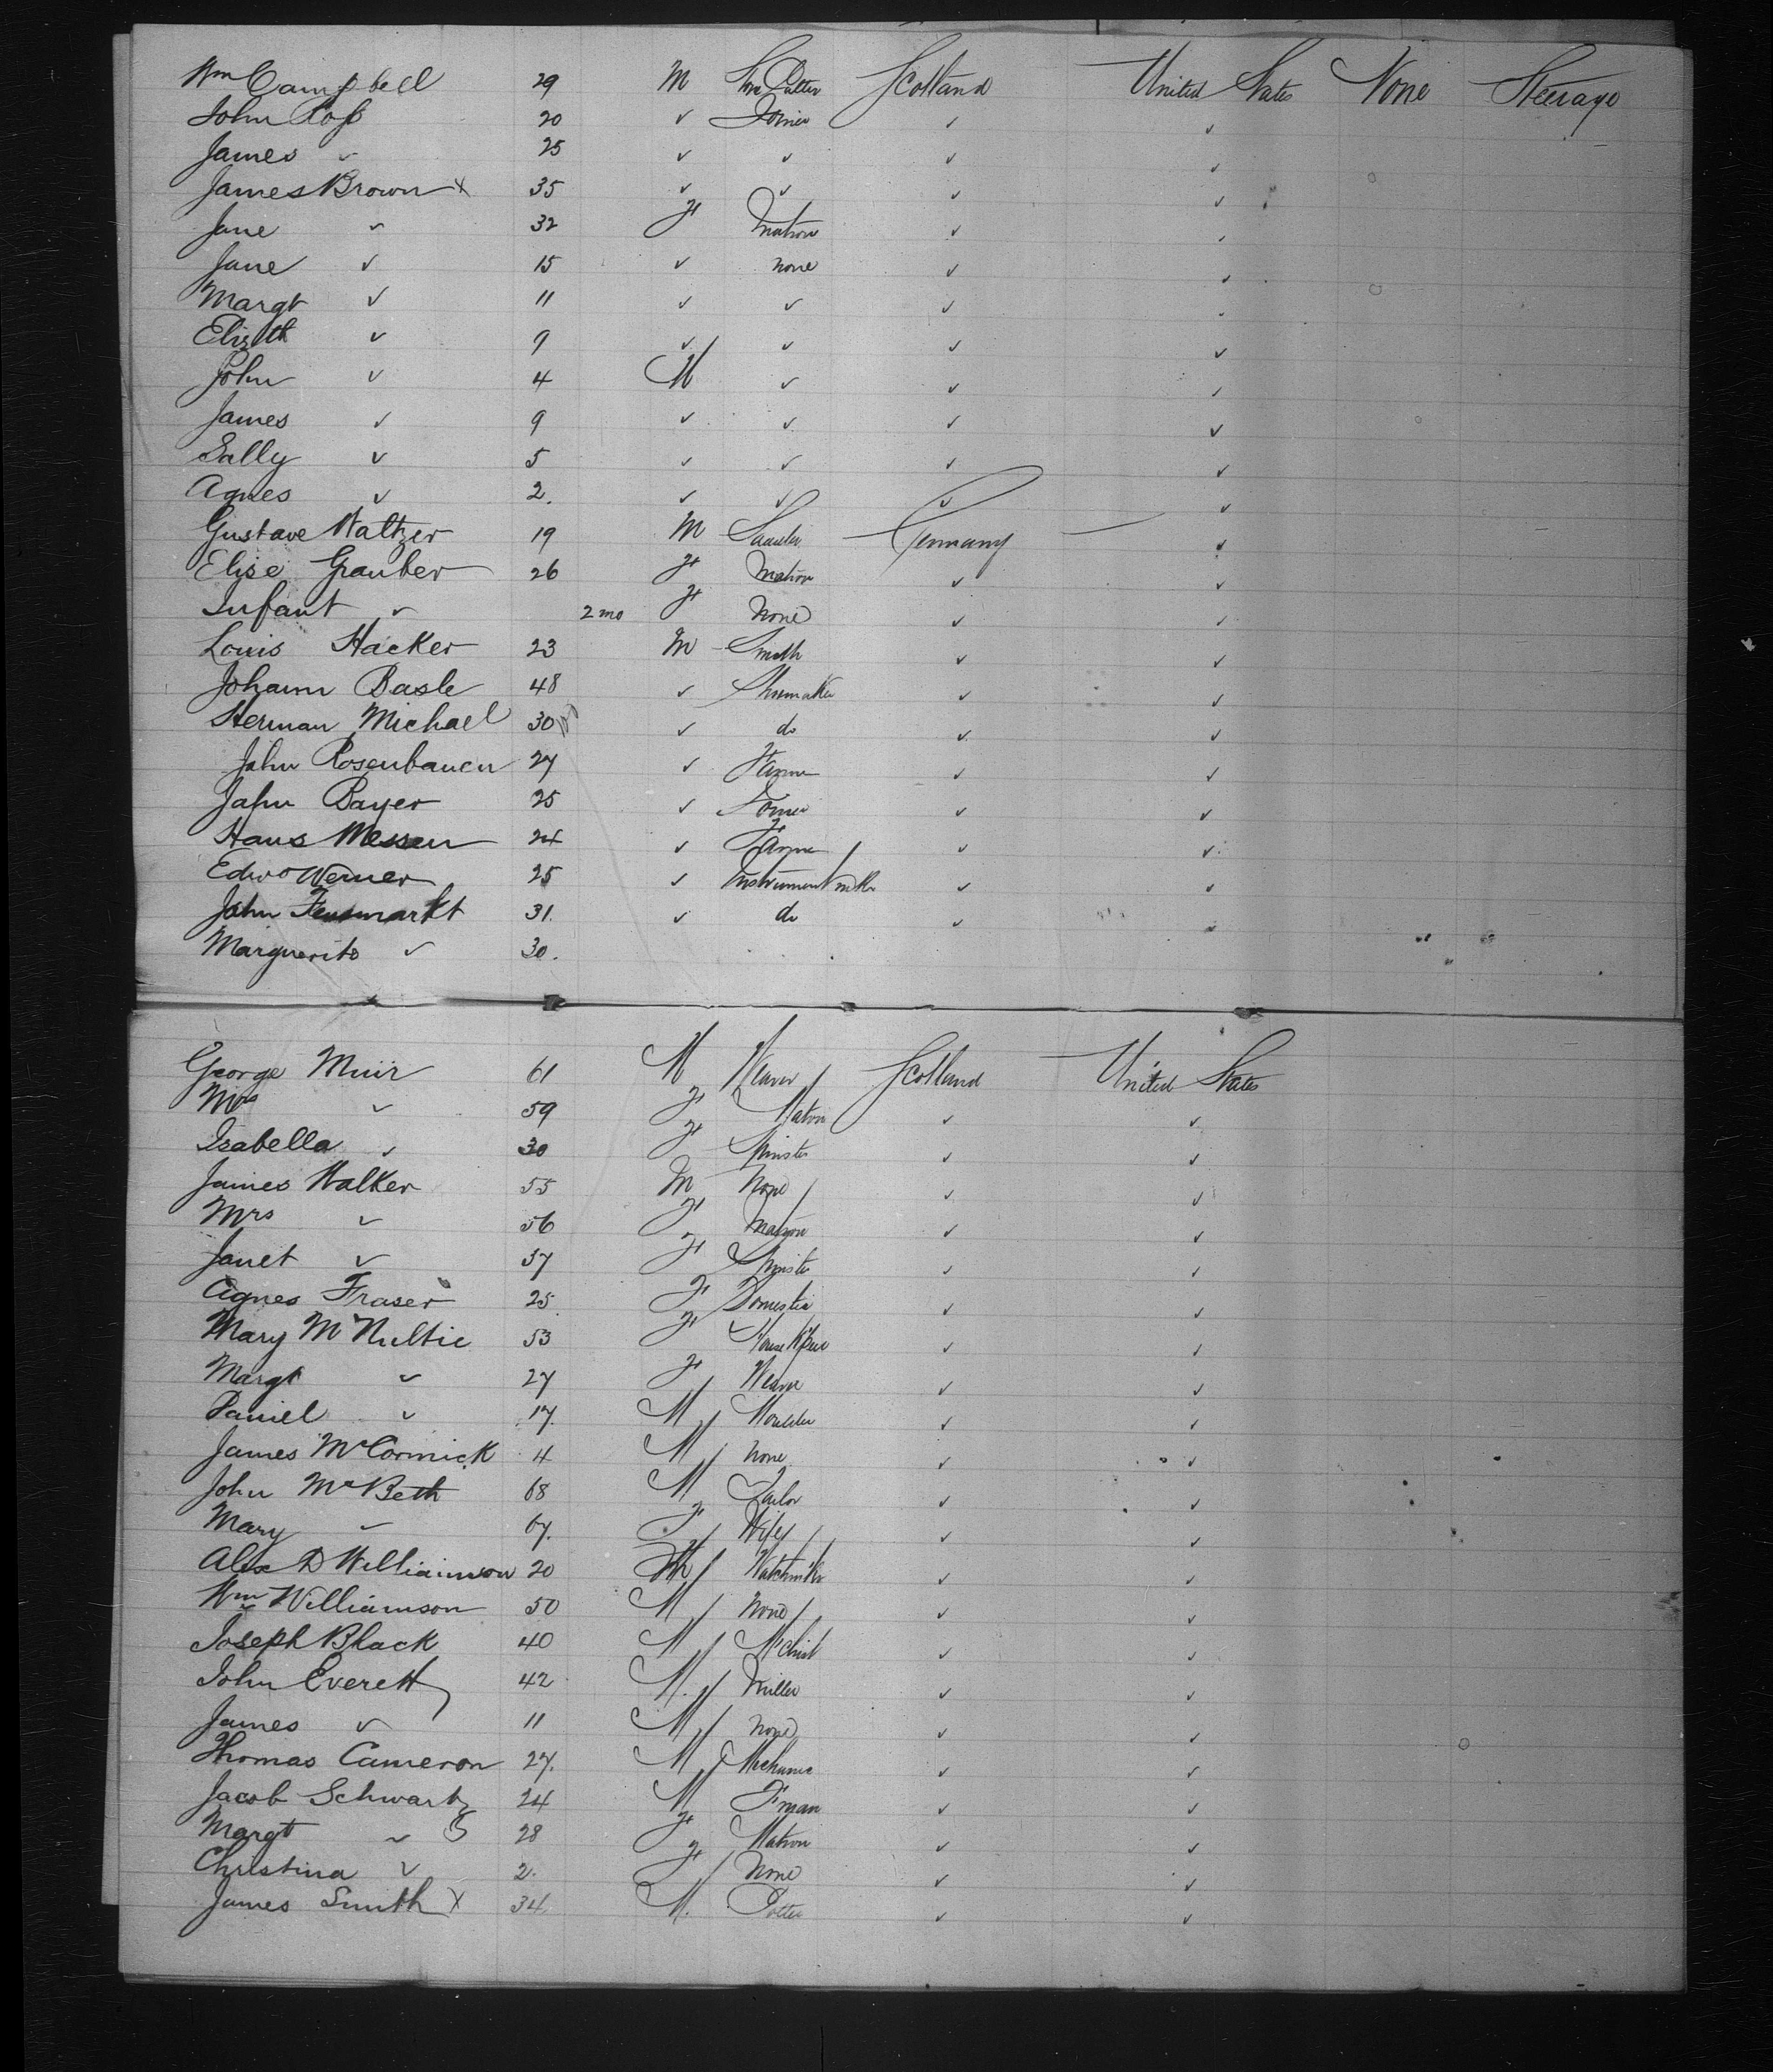 Wm Campbell 29 M Stone Cutter Scotland United States None Steerage
John Ross 20 ✓ Joiner ✓ ✓
James ✓ 25 ✓ ✓ ✓ ✓
James Brown x 35 ✓ ✓ ✓ ✓
Jane ✓ 32 F Matron ✓ ✓
Jane ✓ 15 ✓ none ✓ ✓
Margt ✓ 11 ✓ ✓ ✓ ✓
Elizth ✓ 9 ✓ ✓ ✓ ✓
John ✓ 4 M ✓ ✓ ✓
James ✓ 9 ✓ ✓ ✓ ✓
Sally ✓ 5 ✓ ✓ ✓ ✓
Agnes ✓ 2. ✓ ✓ ✓ ✓
Gustave Waltzer 19 M Germany ✓
Elise Grauber 26 F Matron ✓ ✓
Infant ✓ 2 mo F None ✓ ✓
Louis Hacker 23 M Smith ✓ ✓
Johann Basle 48 ✓ Shoemaker ✓ ✓
Herman Michael 30 ✓ do ✓ ✓
John Rosenbauen 27 ✓ Farmer ✓ ✓
John Bayer 25 ✓ Joiner ✓ ✓
Hans Messen 24 ✓ Farmer ✓ ✓
Edwd Werner 25 ✓ Instrument mkr ✓ ✓
John 31. ✓ do ✓ ✓
Marguerite ✓ 30.
George Muir 61 M Weaver Scotland United States
Mrs ✓ 59 F Matron ✓ ✓
Isabella ✓ 30 F Spinster ✓ ✓
James Walker 55 M None ✓ ✓
Mrs ✓ 56 F Matron ✓ ✓
Janet ✓ 37 F Spinster ✓ ✓
Agnes Fraser 25 F Domestic ✓ ✓
Mary McNultie 53 F House Kper ✓ ✓
Margt ✓ 27 F Weaver ✓ ✓
Daniel ✓ 17. M Moulder ✓ ✓
James McCormick 4 M none ✓ ✓
John McBeth 68 M Tailor ✓ ✓
Mary ✓ 67. F Wife ✓ ✓
Alex D Williamson 20 M Watchmkr ✓ ✓
Wm Williamson 50 M None ✓ ✓
Joseph Black 40 M Mchint ✓ ✓
John Everett 42 M. Miller ✓ ✓
James ✓ 11 M None ✓ ✓
Thomas Cameron 27. M Mechanic ✓ ✓
Jacob Schwartz 24 M F'man ✓ ✓
Margt ✓ 28 F Matron ✓ ✓
Christina ✓ 2. F None ✓ ✓
James Smith x 34 M. Potter ✓ ✓